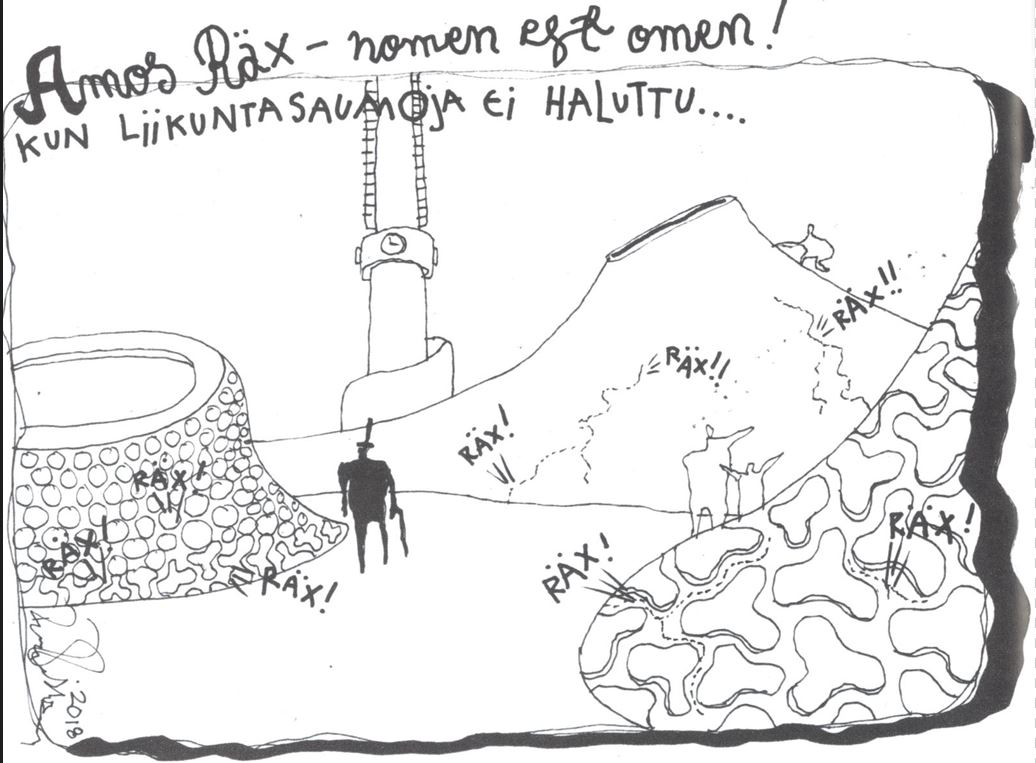 Amos Räx - nomen est omen!
KUN LiiKUNTASAUMOjA Ei HALUTTU....
RÄX!!
RÄX!!
RÄX!
RÄX!
RÄX!
RÄX!
RÄX!
RÄX!
2018